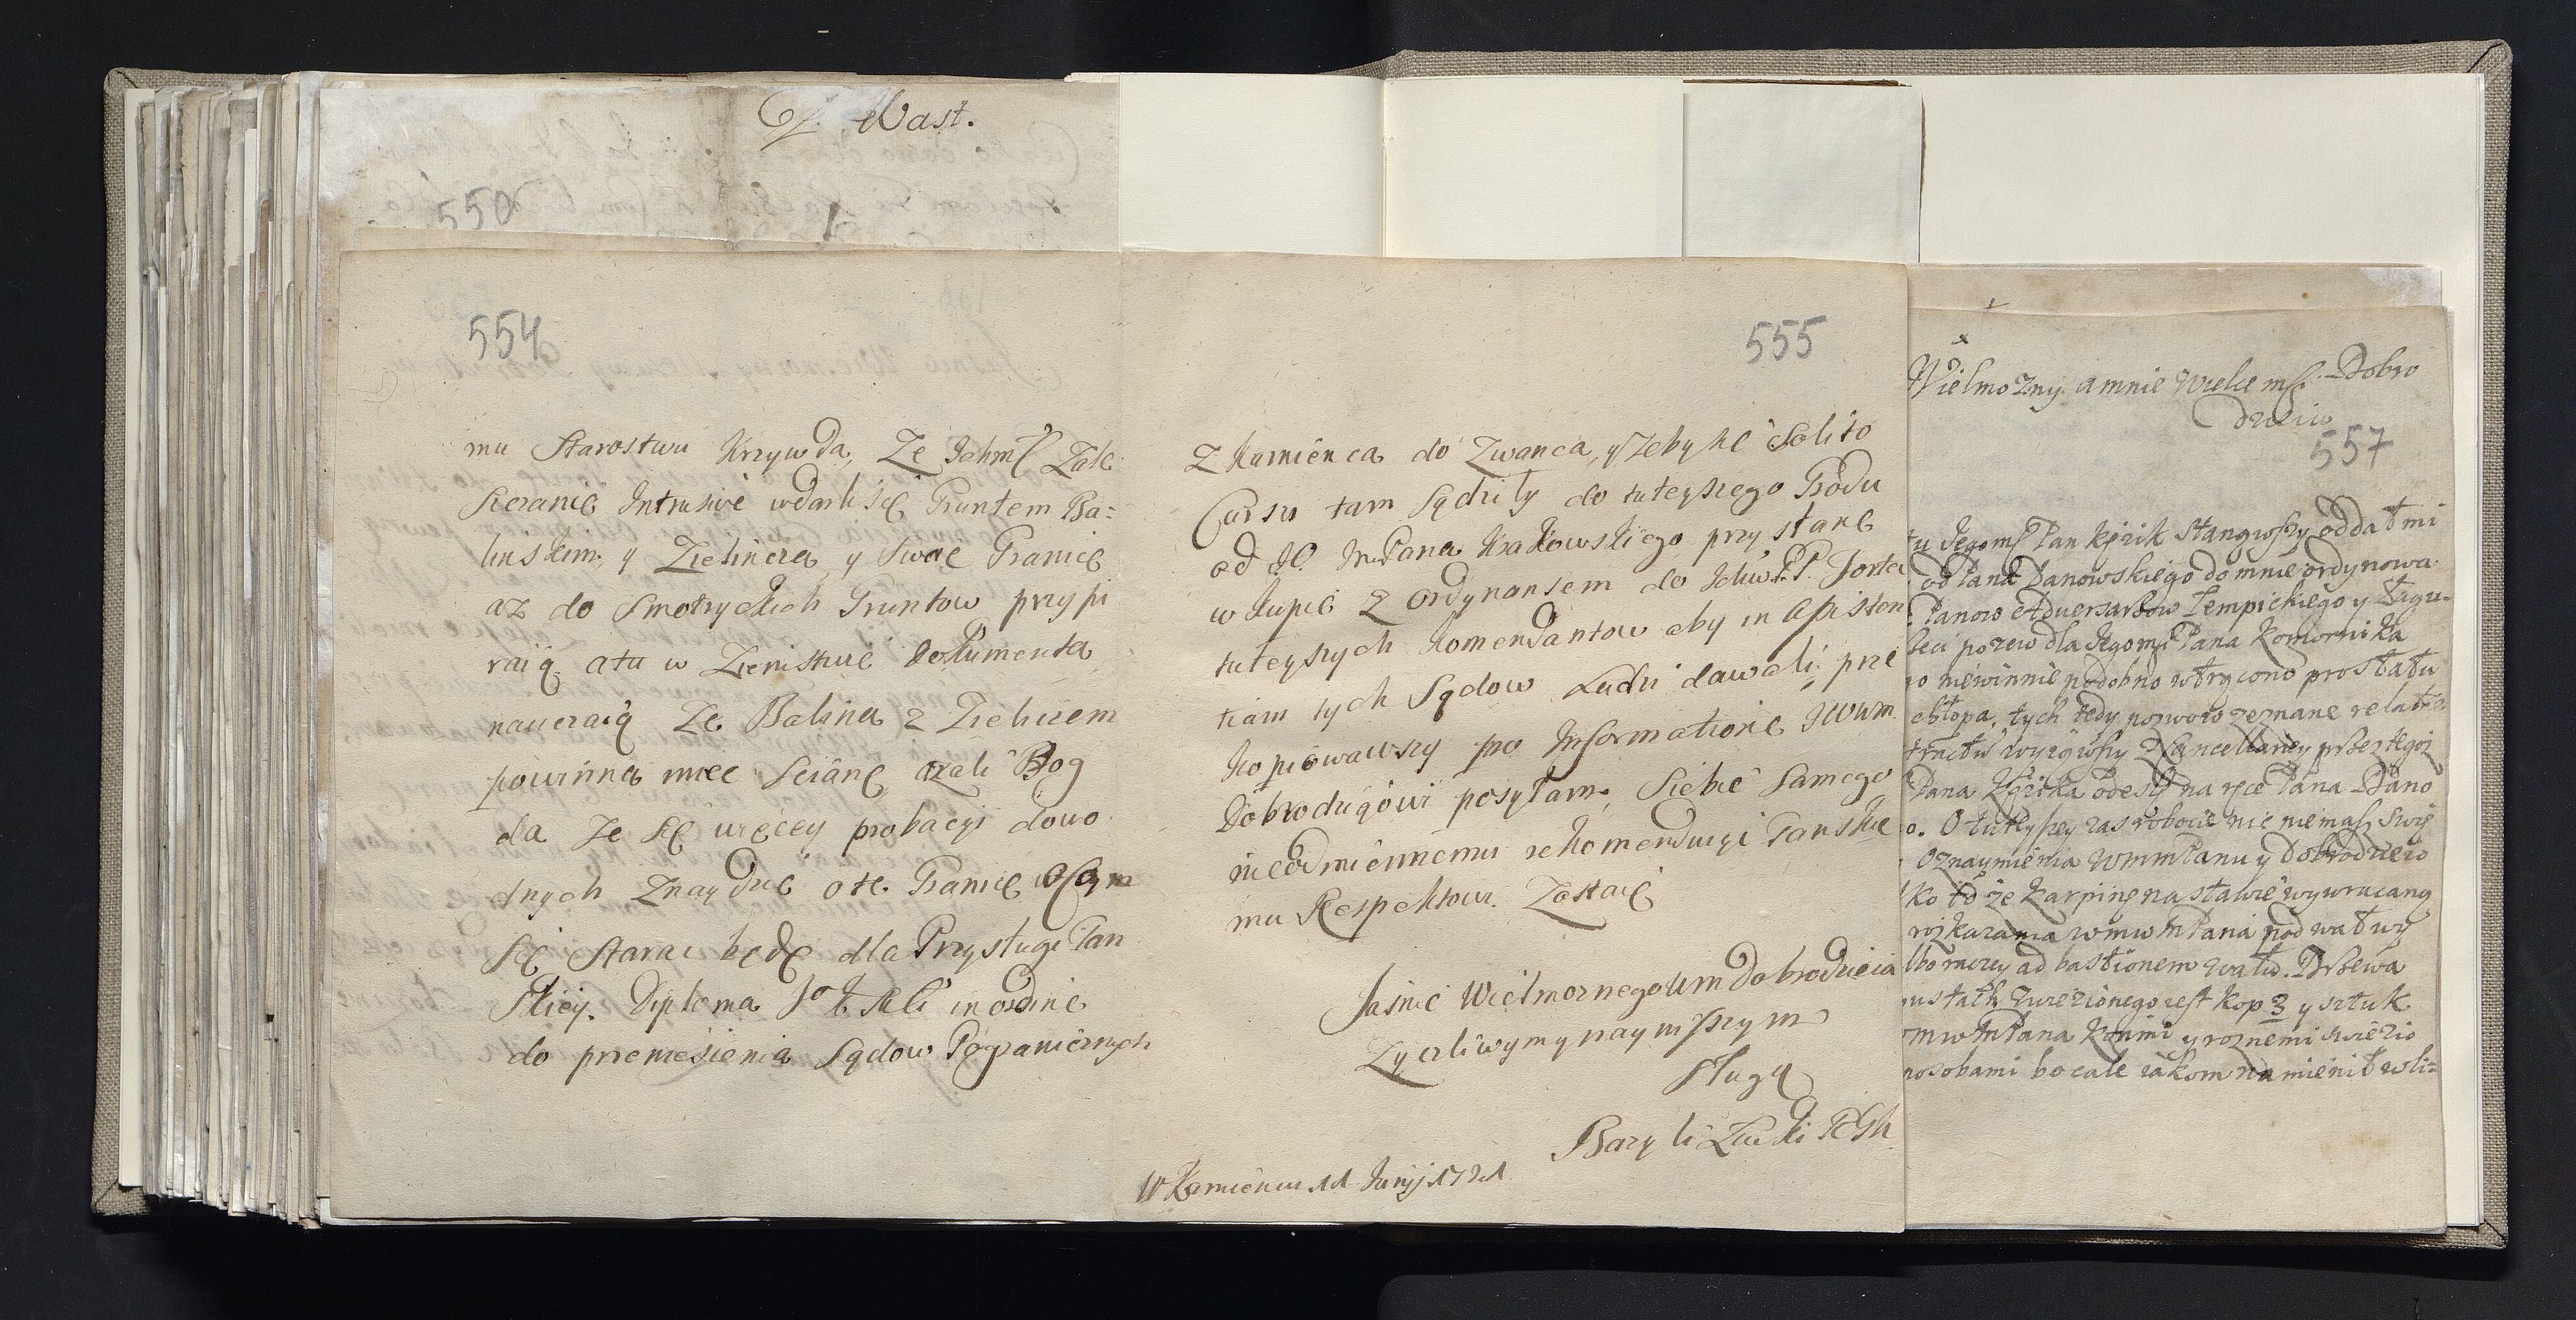 Wast.
550
554
mu Starostwu Krzywda, Ze Ichmć Zale
Sieranie Intrusive wdarli Się Gruntem Ba=
linskim, y Zielincza y Swoie Granice
az do Smotryckich Gruntow przypi
raią. a tu w Ziemstwie dokumenta
naucraią Ze Balina z Zielicem
powinna miec Scianę, azali Bog
da Ze Się więcey probacyi dowo
dnych Znaydzie o te Granice o czym
Się Starac będę dla Przysługi Pan
Skiey. Diploma in ordine
do przeniesienia Sądow Pogranicznych
555
z Kamienca do Zwanca, y Zeby Re Solito
Cursu tam Sądziły do tuteyszego Grodu
od JO. Jm Pana Krakowskiego przysłane
w kupie z Ordynansem do Ichm PP. Forte
tuteyszych Komendantow aby in assisten
tiam tych Sądow Ludzi dawali, prze
kopiowawszy pro Informatione JWWm
Dobrodzieiowi posyłam, Siebie Samego
nieodmiennemu rekomenduięi Panskie
mu Respektowi. Zostaię
Jasnie Wielmoznego Wm Dobrodzieia
Zyczliwym y naymszym
Sługą
Bazyli Zurki
W Kamiencu 11 Junij 1721
Wielmozny a mnie Wielce mſc Dobro
dzieiu
557
tu Jegomſ Pan Kęzik Stangwſzy oddał mi
od Pana Danowskiego do mnie ordynowa
Panow Adversarzow Tempickiego y Łagu=
pozew dla Jegomſ Pana Komornika
o niewinnie podobno wtrącono pro statu
chłopa, tych tedy pozwow zeznane relati
wyiąwſzy z Cancellariey przez tegoz
Pana Kęzika odesłę na ręce Pana Dano
o. O tuteyſzey zas robocie nic niemaſz Swię
Oznaymienia WmmPanu y Dobrodzieio
ko to ze Karpinę na stawie wywracaną
rozkazania wmw mPana pod wał wy
ad bastionem wału. Drzewa
zwiezionego iest kop 3 y sztuk
mw mPana konmi y roznemi swiezio
osobami bo cale iakom namienił wli=